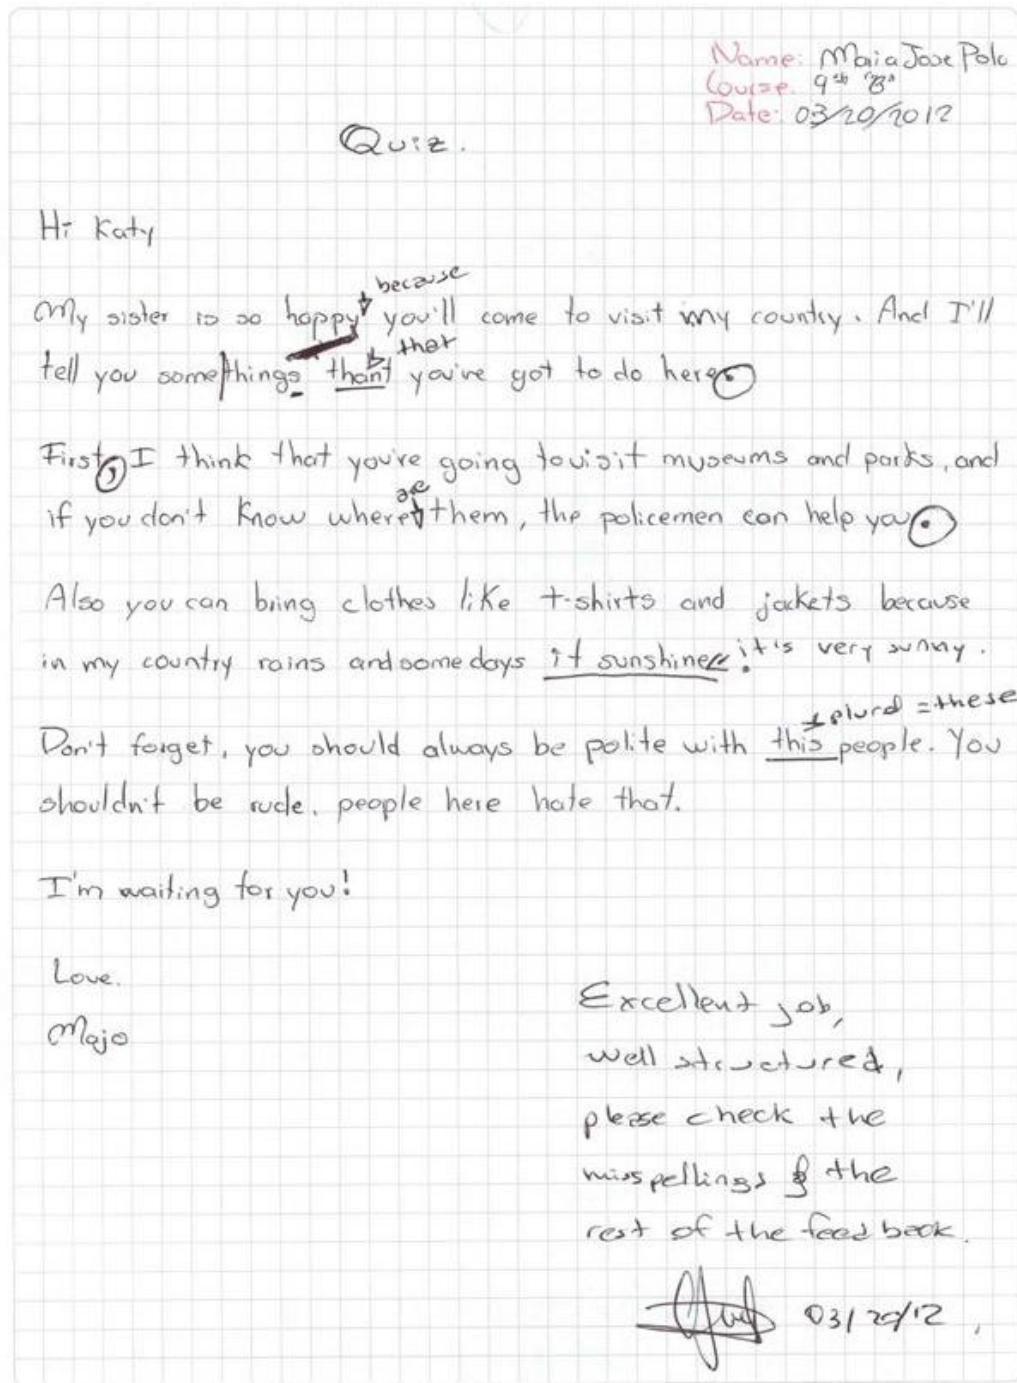 Name: Maria Jose Polo
Course: 9th "B"
Date: 03/20/2012
Quiz.
Hi Katy
because
My sister is so happy you'll come to visit my country. And I'll
that
tell you some things thant you've got to do here.
First, I think that you're going to visit museums and parks, and
are
if you don't know where them, the policemen can help you.
Also you can bring clothes like t-shirts and jackets because
in my country rains and some days it sunshine it's very sunny.
plural = these
Don't forget, you should always be polite with this people. You
shouldn't be rude. people here hate that.
I'm waiting for you!
Love.
Majo
Excellent job,
well structured,
please check the
misspellings & the
rest of the feedback.
03/20/12